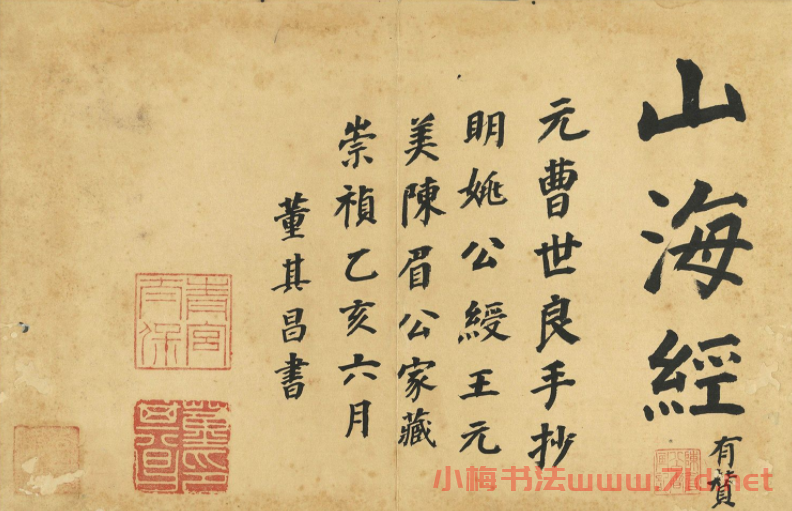 山海經
有贊
元曹世良手抄
明姚公綬王元
美陳眉公家藏
崇禎乙亥六月
董其昌書
青宮太保
小梅书法www.7ld.net